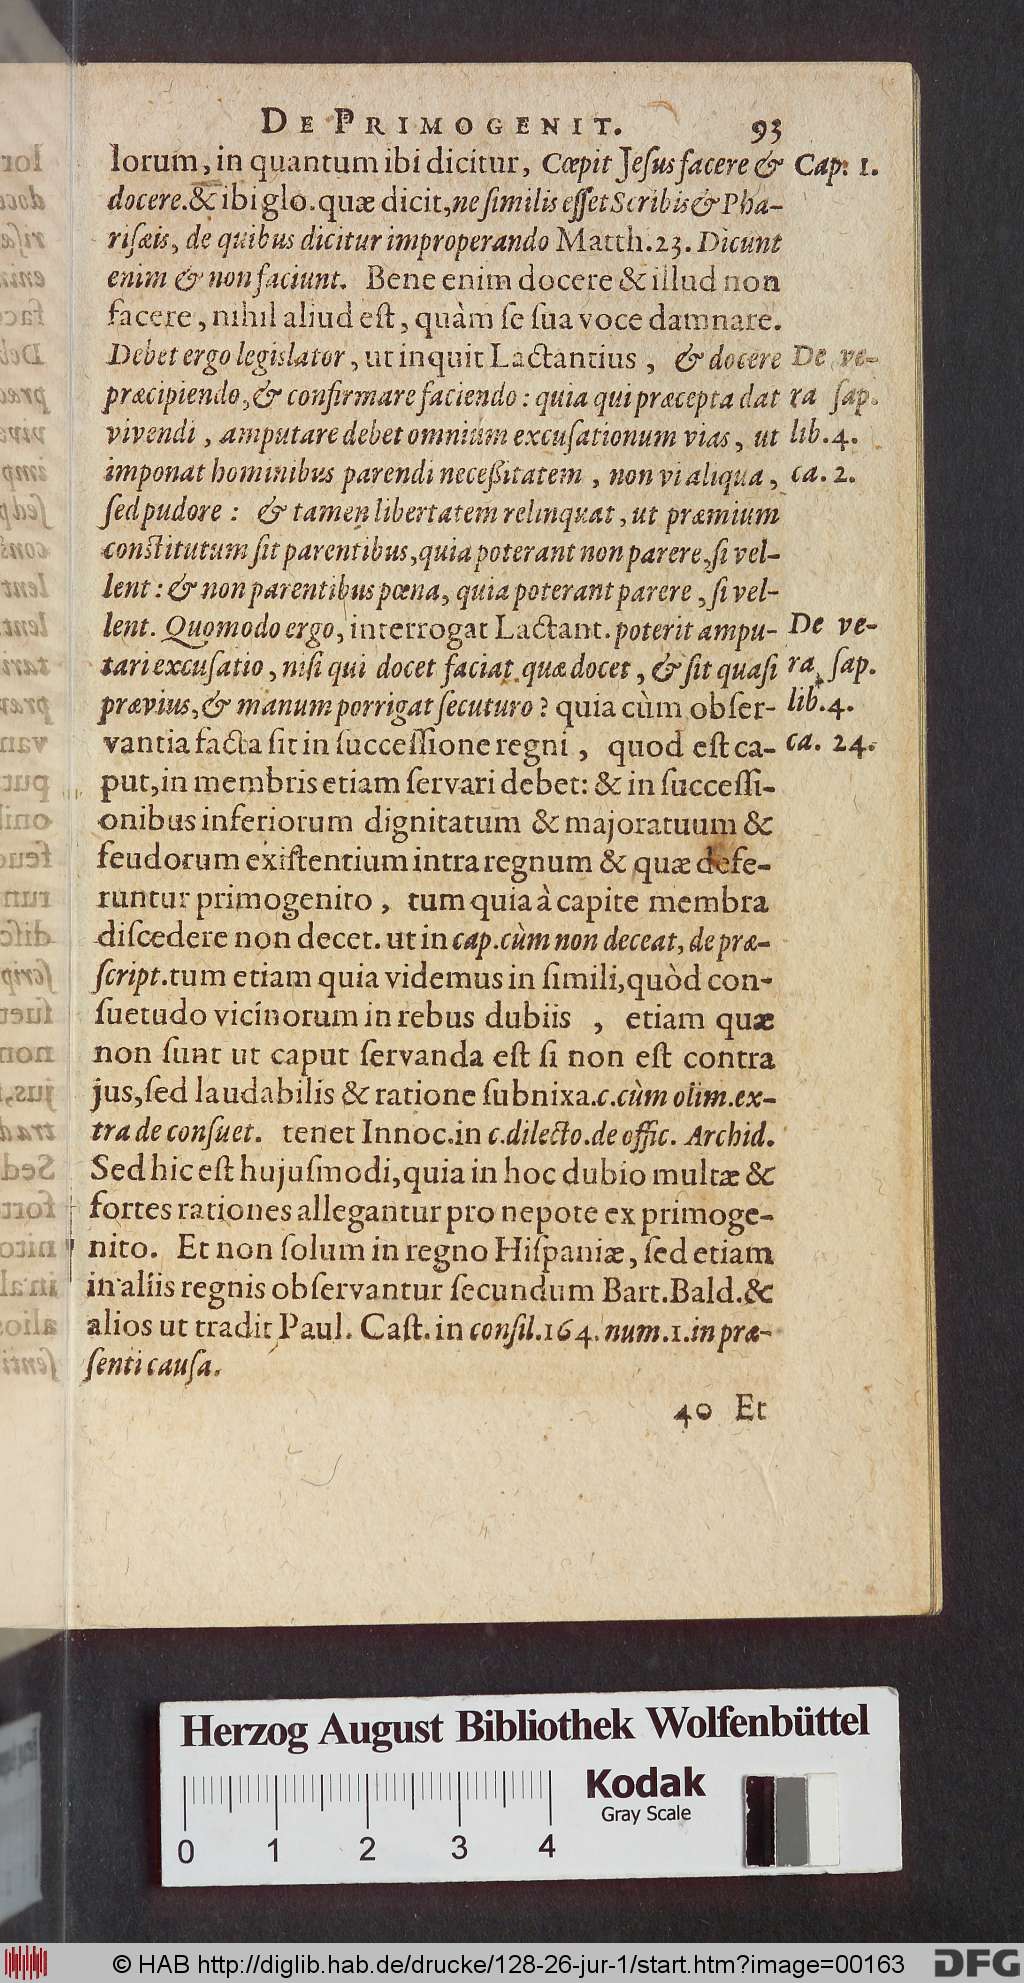 DE PRIMOGENIT. 93
lorum, in quantum ibi dicitur, Cœpit Jeſus facere & Cap. 1.
docere. & ibi glo. quæ dicit, ne ſimilis eſſet Scribis & Pha-
riſæis, de quibus dicitur improperando Matth. 23. Dicunt
enim & non faciunt. Bene enim docere & illud non
facere, nihil aliud eſt, quàm ſe ſua voce damnare.
Debet ergo legislator, ut inquit Lactantius, & docere De ve-
præcipiendo, & confirmare faciendo: quia qui præcepta dat ra ſap.
vivendi, amputare debet omnium excuſationum vias, ut lib. 4.
imponat hominibus parendi neceßitatem, non vi aliqua, ca. 2.
ſed pudore: & tamen libertatem relinquat, ut præmium
conſtitutum ſit parentibus, quia poterant non parere, ſi vel-
lent: & non parentibus pœna, quia poterant parere, ſi vel-
lent. Quomodo ergo, interrogat Lactant. poterit ampu- De ve-
tari excuſatio, niſi qui docet faciat quæ docet, & ſit quaſi ra ſap.
prævius, & manum porrigat ſecuturo? quia cùm obſer- lib. 4.
vantia facta ſit in ſucceſſione regni, quod eſt ca- ca. 24.
put, in membris etiam ſervari debet: & in ſucceſſi-
onibus inferiorum dignitatum & majoratuum &
feudorum exiſtentium intra regnum & quæ defe-
runtur primogenito, tum quia à capite membra
diſcedere non decet. ut in cap. cùm non deceat, de præ-
ſcript. tum etiam quia videmus in ſimili, quòd con-
ſuetudo vicinorum in rebus dubiis, etiam quæ
non ſunt ut caput ſervanda eſt ſi non eſt contra
jus, ſed laudabilis & ratione ſubnixa. c. cùm olim. ex-
tra de conſuet. tenet Innoc. in c. dilecto. de offic. Archid.
Sed hic eſt hujuſmodi, quia in hoc dubio multæ &
fortes rationes allegantur pro nepote ex primoge-
nito. Et non ſolum in regno Hiſpaniæ, ſed etiam
in aliis regnis obſervantur ſecundum Bart. Bald. &
alios ut tradit Paul. Caſt. in conſil. 164. num. 1. in præ-
ſenti cauſa.
40 Et
Herzog August Bibliothek Wolfenbüttel
Kodak
Gray Scale
0 1 2 3 4
© HAB http://diglib.hab.de/drucke/128-26-jur-1/start.htm?image=00163
DFG